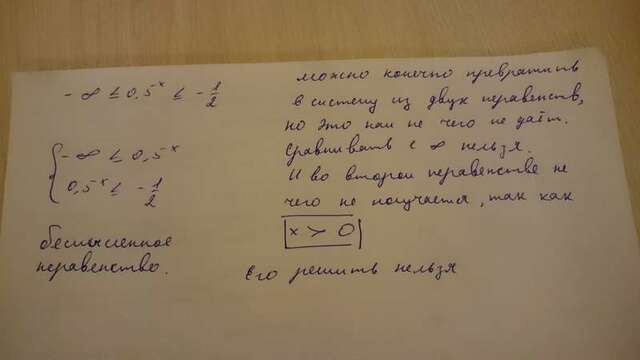 -∞ ≤ 0,5^x ≤ -1/2
{ -∞ ≤ 0,5^x
0,5^x ≤ -1/2
бесмысленное
неравенство.
можно конечно превратить
в систему из двух неравенств,
но это нам не чего не даёт.
Сравнивать с ∞ нельзя.
И во втором неравенстве не
чего не получается, так как
x > 0
Его решить нельзя